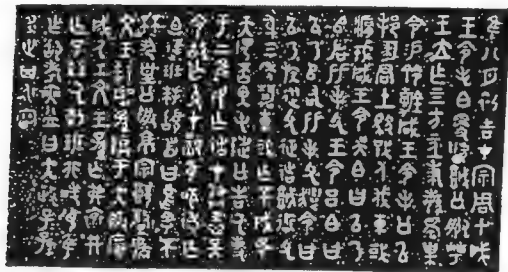 隹八月初吉才宗周甲戌
王令毛白更虢城公服甹
王立乍四方亟秉緐蜀巢
令易鈴勒咸王令毛公㠯
邦冢君土馭戜人伐東或
戎咸王令吳白曰㠯乃
𠂤左比毛父王令呂白曰
㠯乃𠂤右比毛父遣令曰
㠯乃族從父征城衛父
身三年靜東或亡不成
天畏否畀屯陟公告氒事
于上隹民亡才彝天
令故亡允才顯隹敬德亡
卣違班拜稽首曰烏虖不
丮皇公受京宗懿釐毓
文王王姒聖孫隥于大服廣
成氒工文王孫亡弗褱井
亡克競氒剌班非敢覓隹
乍卲考爽益曰大政子子孫
多世其永寶